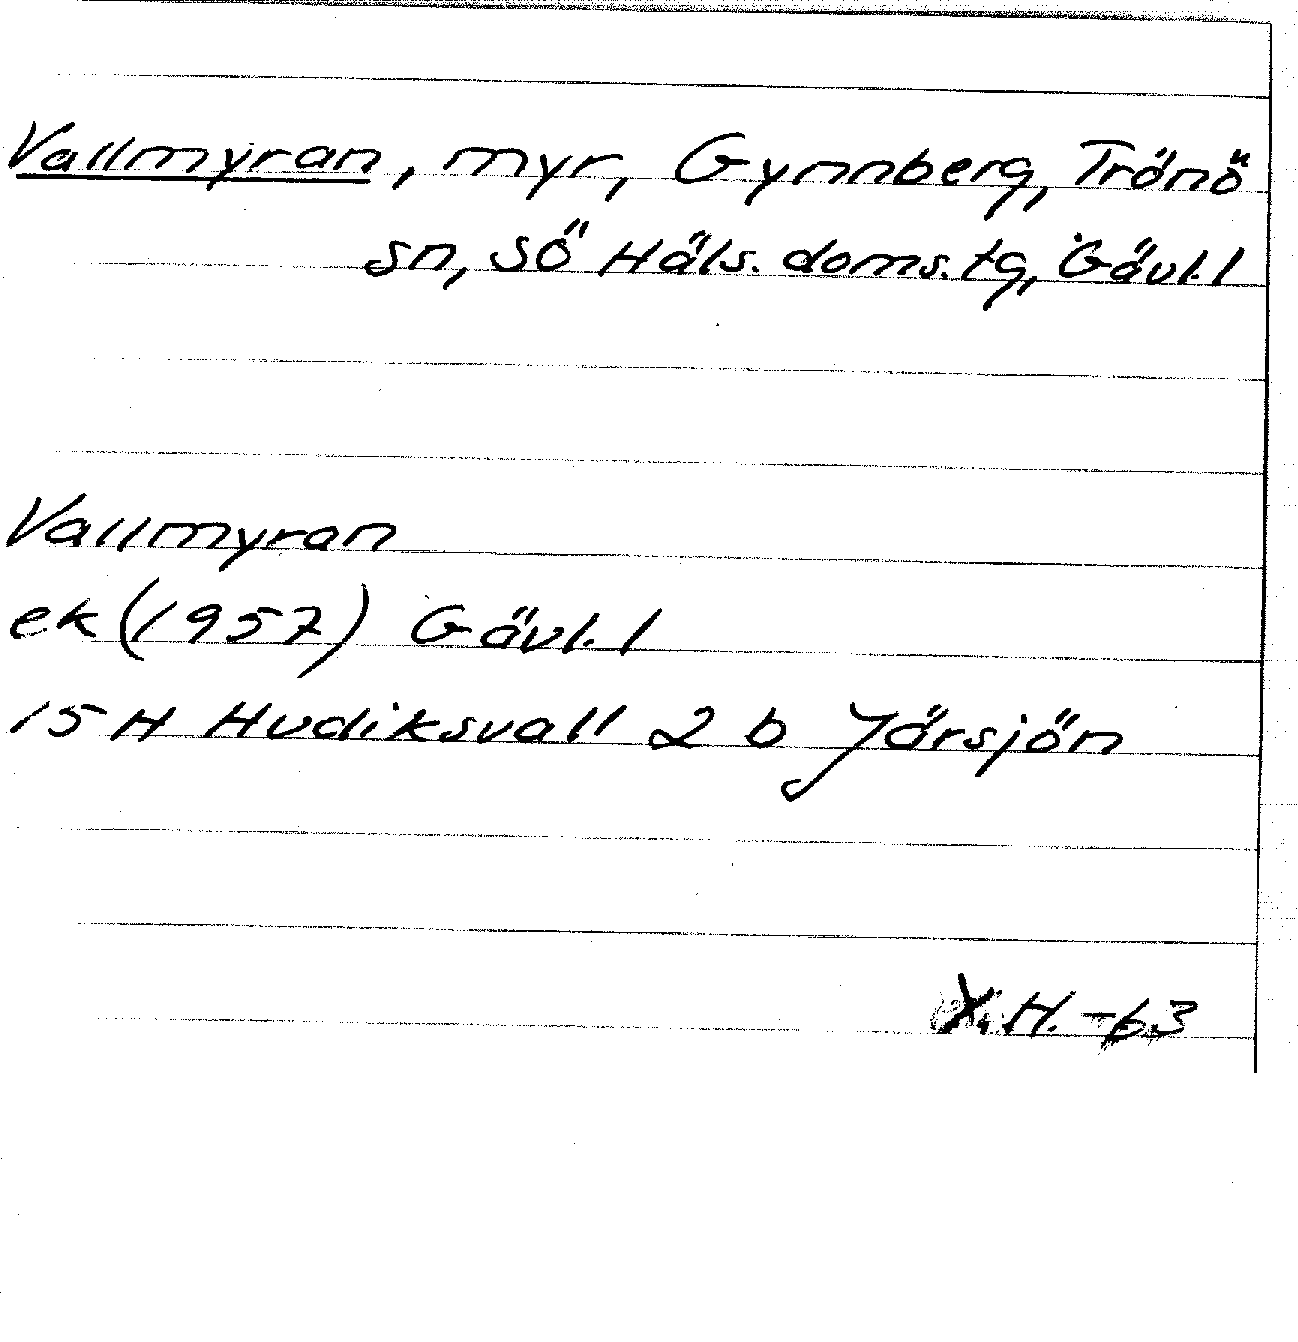 Vallmyran, myr, Gynnberg, Trönö
sn, sö Häls. doms. tg, Gävl. l
Vallmyran
ek (1957) Gävl. l
15 H Hudiksvall 2 b Järsjön
H. -63